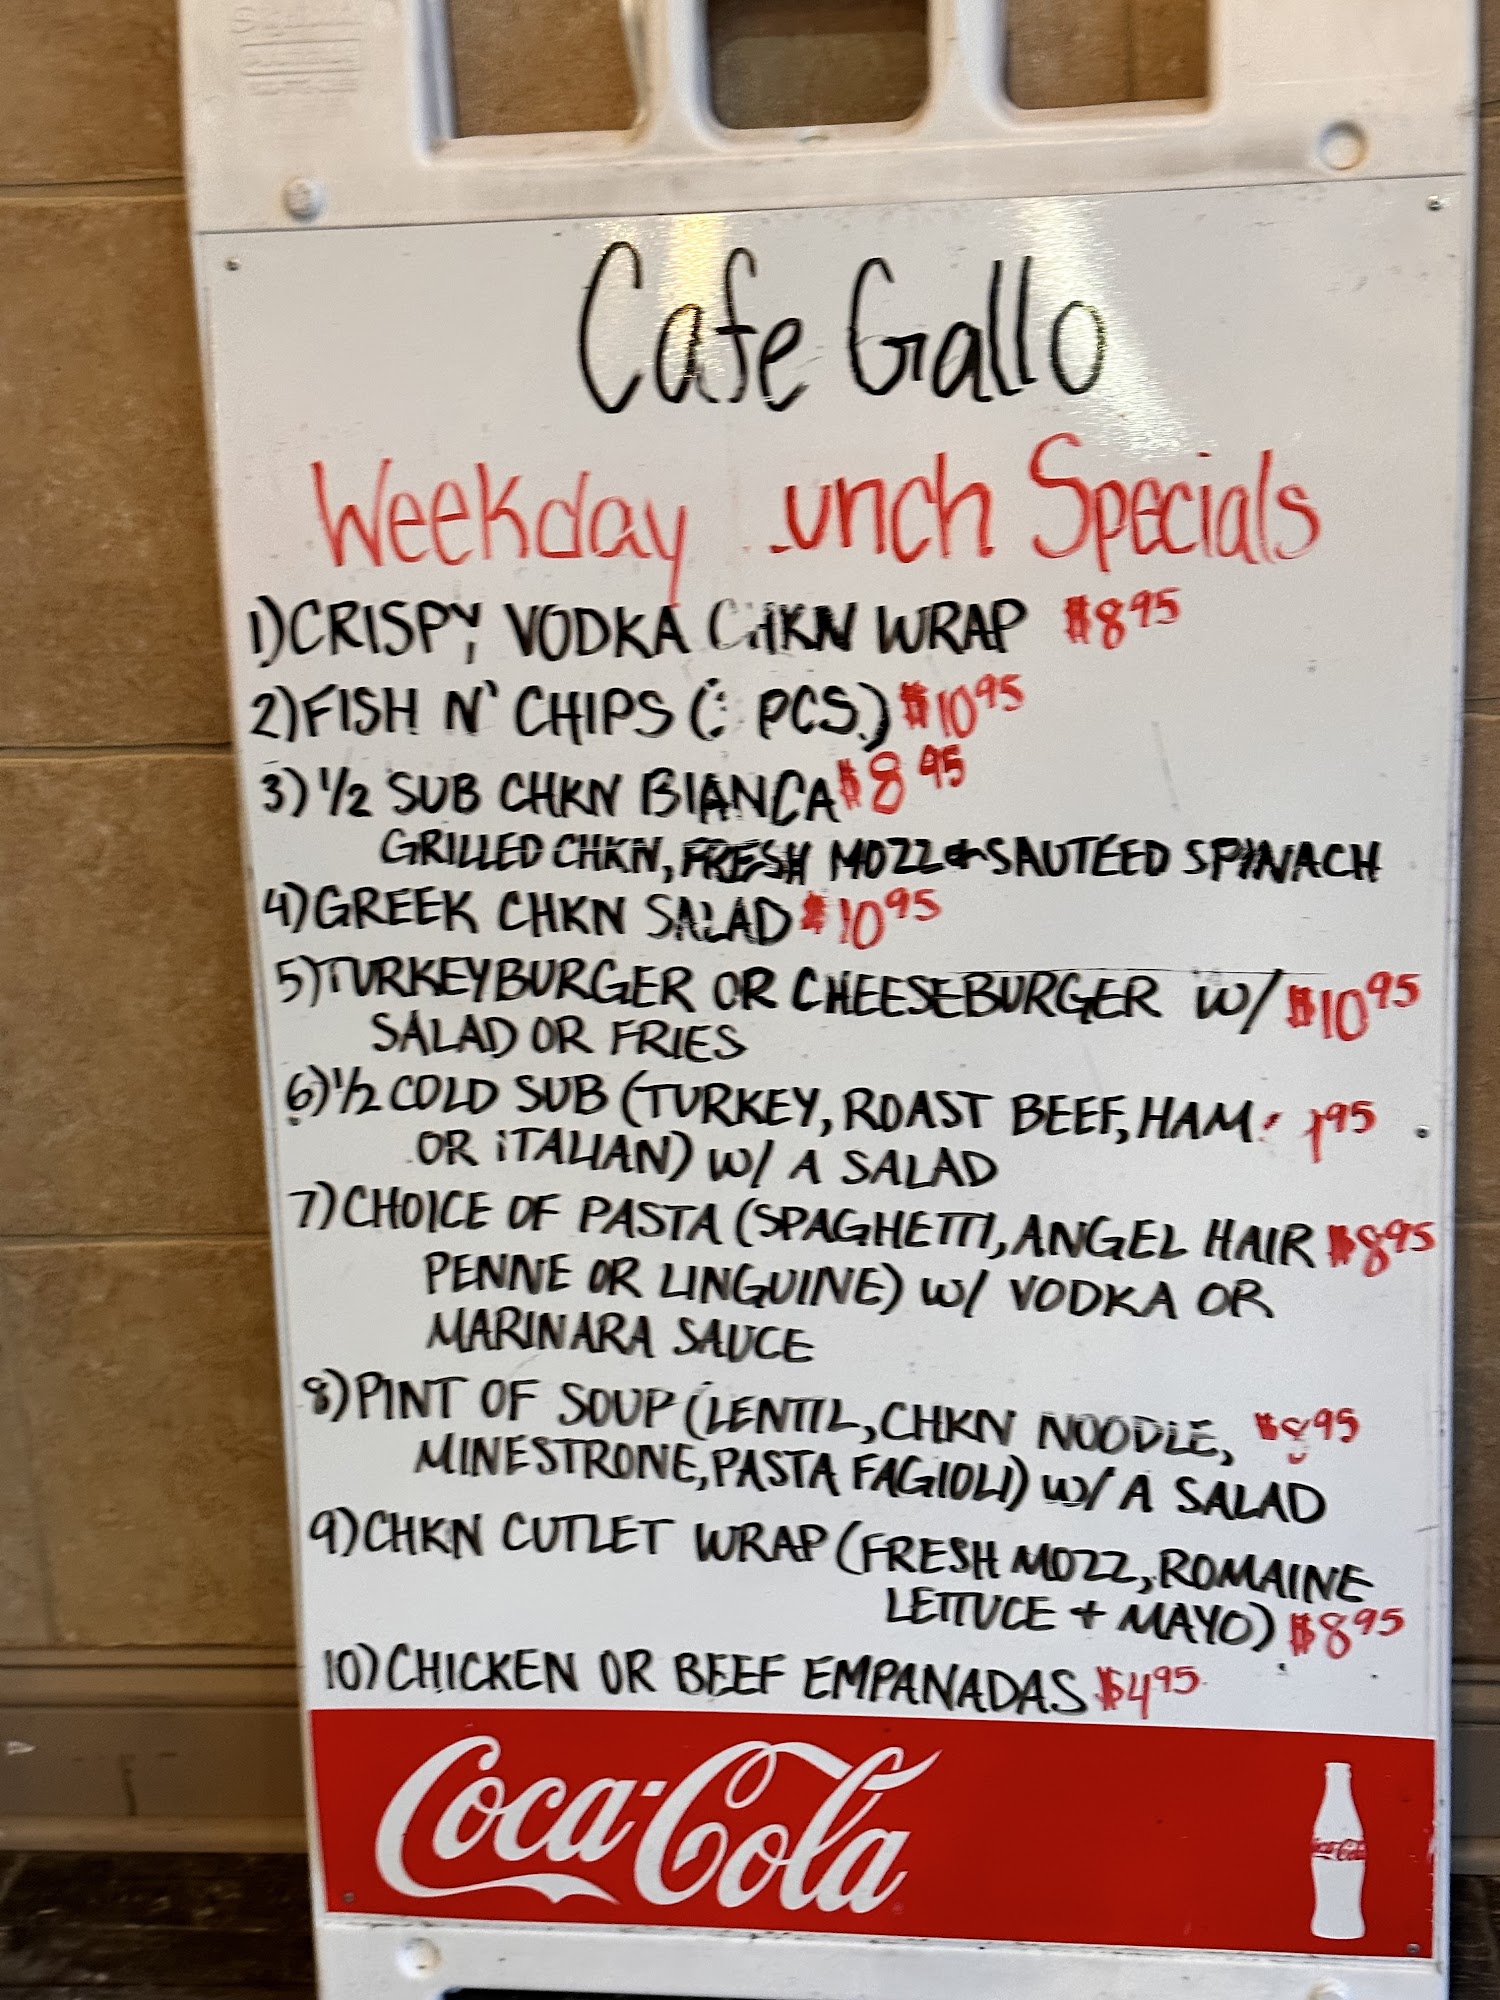 Cafe Gallo
Weekday Lunch Specials
1) CRISPY VODKA CHKN WRAP $8 95
2) FISH N' CHIPS ( PCS.) $10 95
3) 1/2 SUB CHKN BIANCA $8 95
GRILLED CHKN, FRESH MOZZ & SAUTEED SPINACH
4) GREEK CHKN SALAD $10 95
5) TURKEYBURGER OR CHEESEBURGER W/ $10 95
SALAD OR FRIES
6) 1/2 COLD SUB (TURKEY, ROAST BEEF, HAM
OR ITALIAN) W/ A SALAD
7) CHOICE OF PASTA (SPAGHETTI, ANGEL HAIR $8 95
PENNE OR LINGUINE) W/ VODKA OR
MARINARA SAUCE
8) PINT OF SOUP (LENTIL, CHKN NOODLE, $8 95
MINESTRONE, PASTA FAGIOLI) W/ A SALAD
9) CHKN CUTLET WRAP (FRESH MOZZ, ROMAINE
LETTUCE + MAYO) $8 95
10) CHICKEN OR BEEF EMPANADAS $4 95
Coca-Cola
Coca-Cola